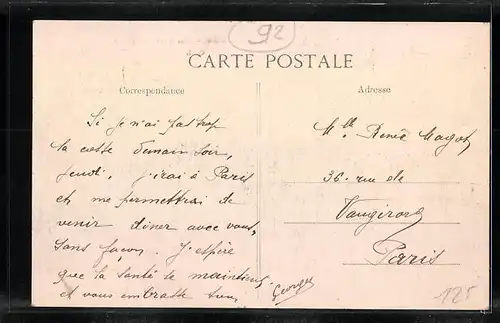 92
CARTE POSTALE
Correspondance
Adresse
Si je n'ai pas trop
la cosse demain soir,
jeudi, j'irai à Paris
et me permettrai de
venir dîner avec vous,
sans façon. J'espère
que la santé se maintient
et vous embrasse bien
Georges
Mlle Renée Magot
36 rue de
Vaugirard
Paris
125